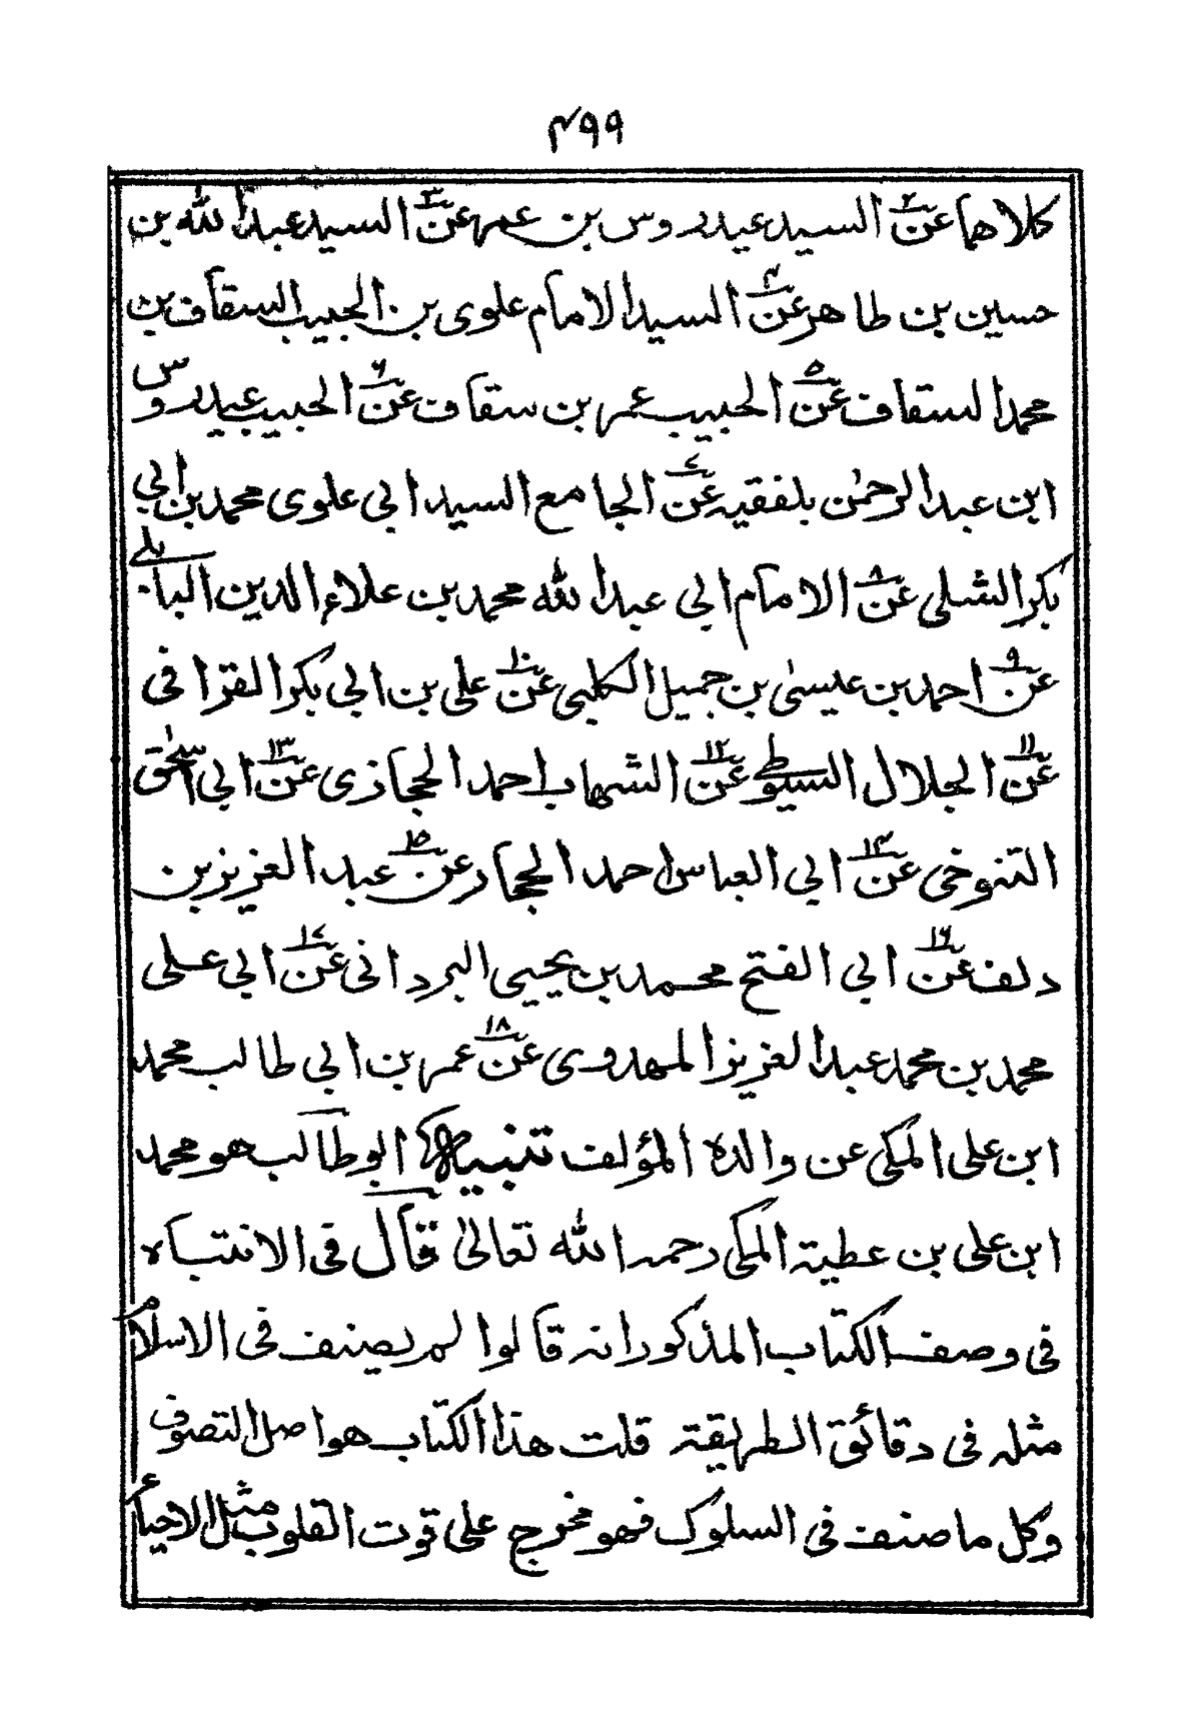 ۴۹۹
كلاهما عن۲ السيد عيدروس بن عمر عن۳ السيد عبدالله بن
حسين بن طاهر عن۴ السيد الامام علوى بن الحبيب السقاف بن
محمد السقاف عن۵ الحبيب عمر بن سقاف عن۶ الحبيب عيدروس
ابن عبدالرحمٰن بلفقيه عن۷ الجامع السيد ابي علوى محمد بن ابي
بكر الشلي عن۸ الامام ابي عبدالله محمد بن علاء الدين البابلي
عن۹ احمد بن عيسىٰ بن جميل الكلبي عن۱۰ علي بن ابي بكر القرافي
عن۱۱ الجلال السيوطي عن۱۲ الشهاب احمد الحجازى عن۱۳ ابي اسحٰق
التنوخي عن۱۴ ابي العباس احمد الحجار عن۱۵ عبد العزيز بن
دلف عن۱۶ ابي الفتح محمد بن يحيى البردانى عن۱۷ ابي على
محمد بن محمد عبد العزيز المهدوى عن۱۸ عمر بن ابي طالب محمد
ابن على المكى عن والده المؤلف تنبيه ابو طالب هو محمد
ابن على بن عطية المكى رحمه الله تعالىٰ قال فى الانتباه
فى وصف الكتاب المذكور انه قالوا لم يصنف فى الاسلام
مثله فى دقائق الطريقة قلت هذا الكتاب هو اصل التصوف
وكل ما صنف فى السلوك فهو مخرج على قوت القلوب مثل الاحياء